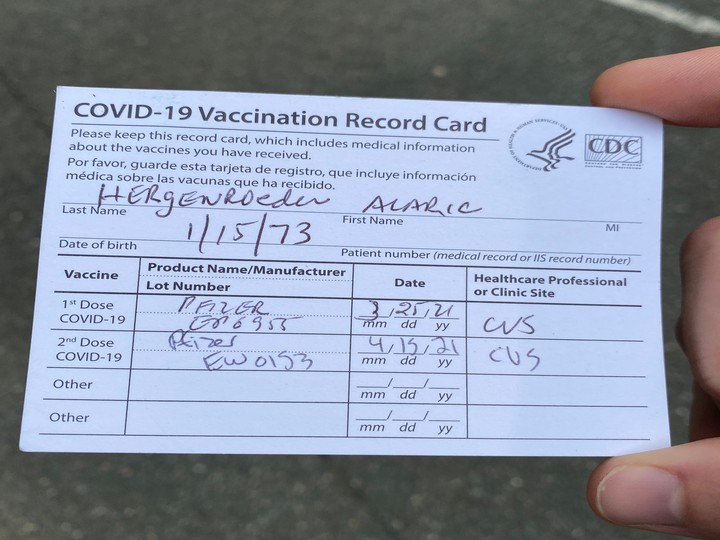 COVID-19 Vaccination Record Card
Please keep this record card, which includes medical information
about the vaccines you have received.
Por favor, guarde esta tarjeta de registro, que incluye información
médica sobre las vacunas que ha recibido.
CDC
HERGENROEDER ALARIC
Last Name First Name MI
1/15/73
Date of birth Patient number (medical record or IIS record number)
Vaccine Product Name/Manufacturer Date Healthcare Professional
Lot Number or Clinic Site
1st Dose PFIZER 3/25/21 CVS
COVID-19 mm dd yy
2nd Dose Pfizer 4/15/21 CVS
COVID-19 EW0153 mm dd yy
Other / /
mm dd yy
Other / /
mm dd yy